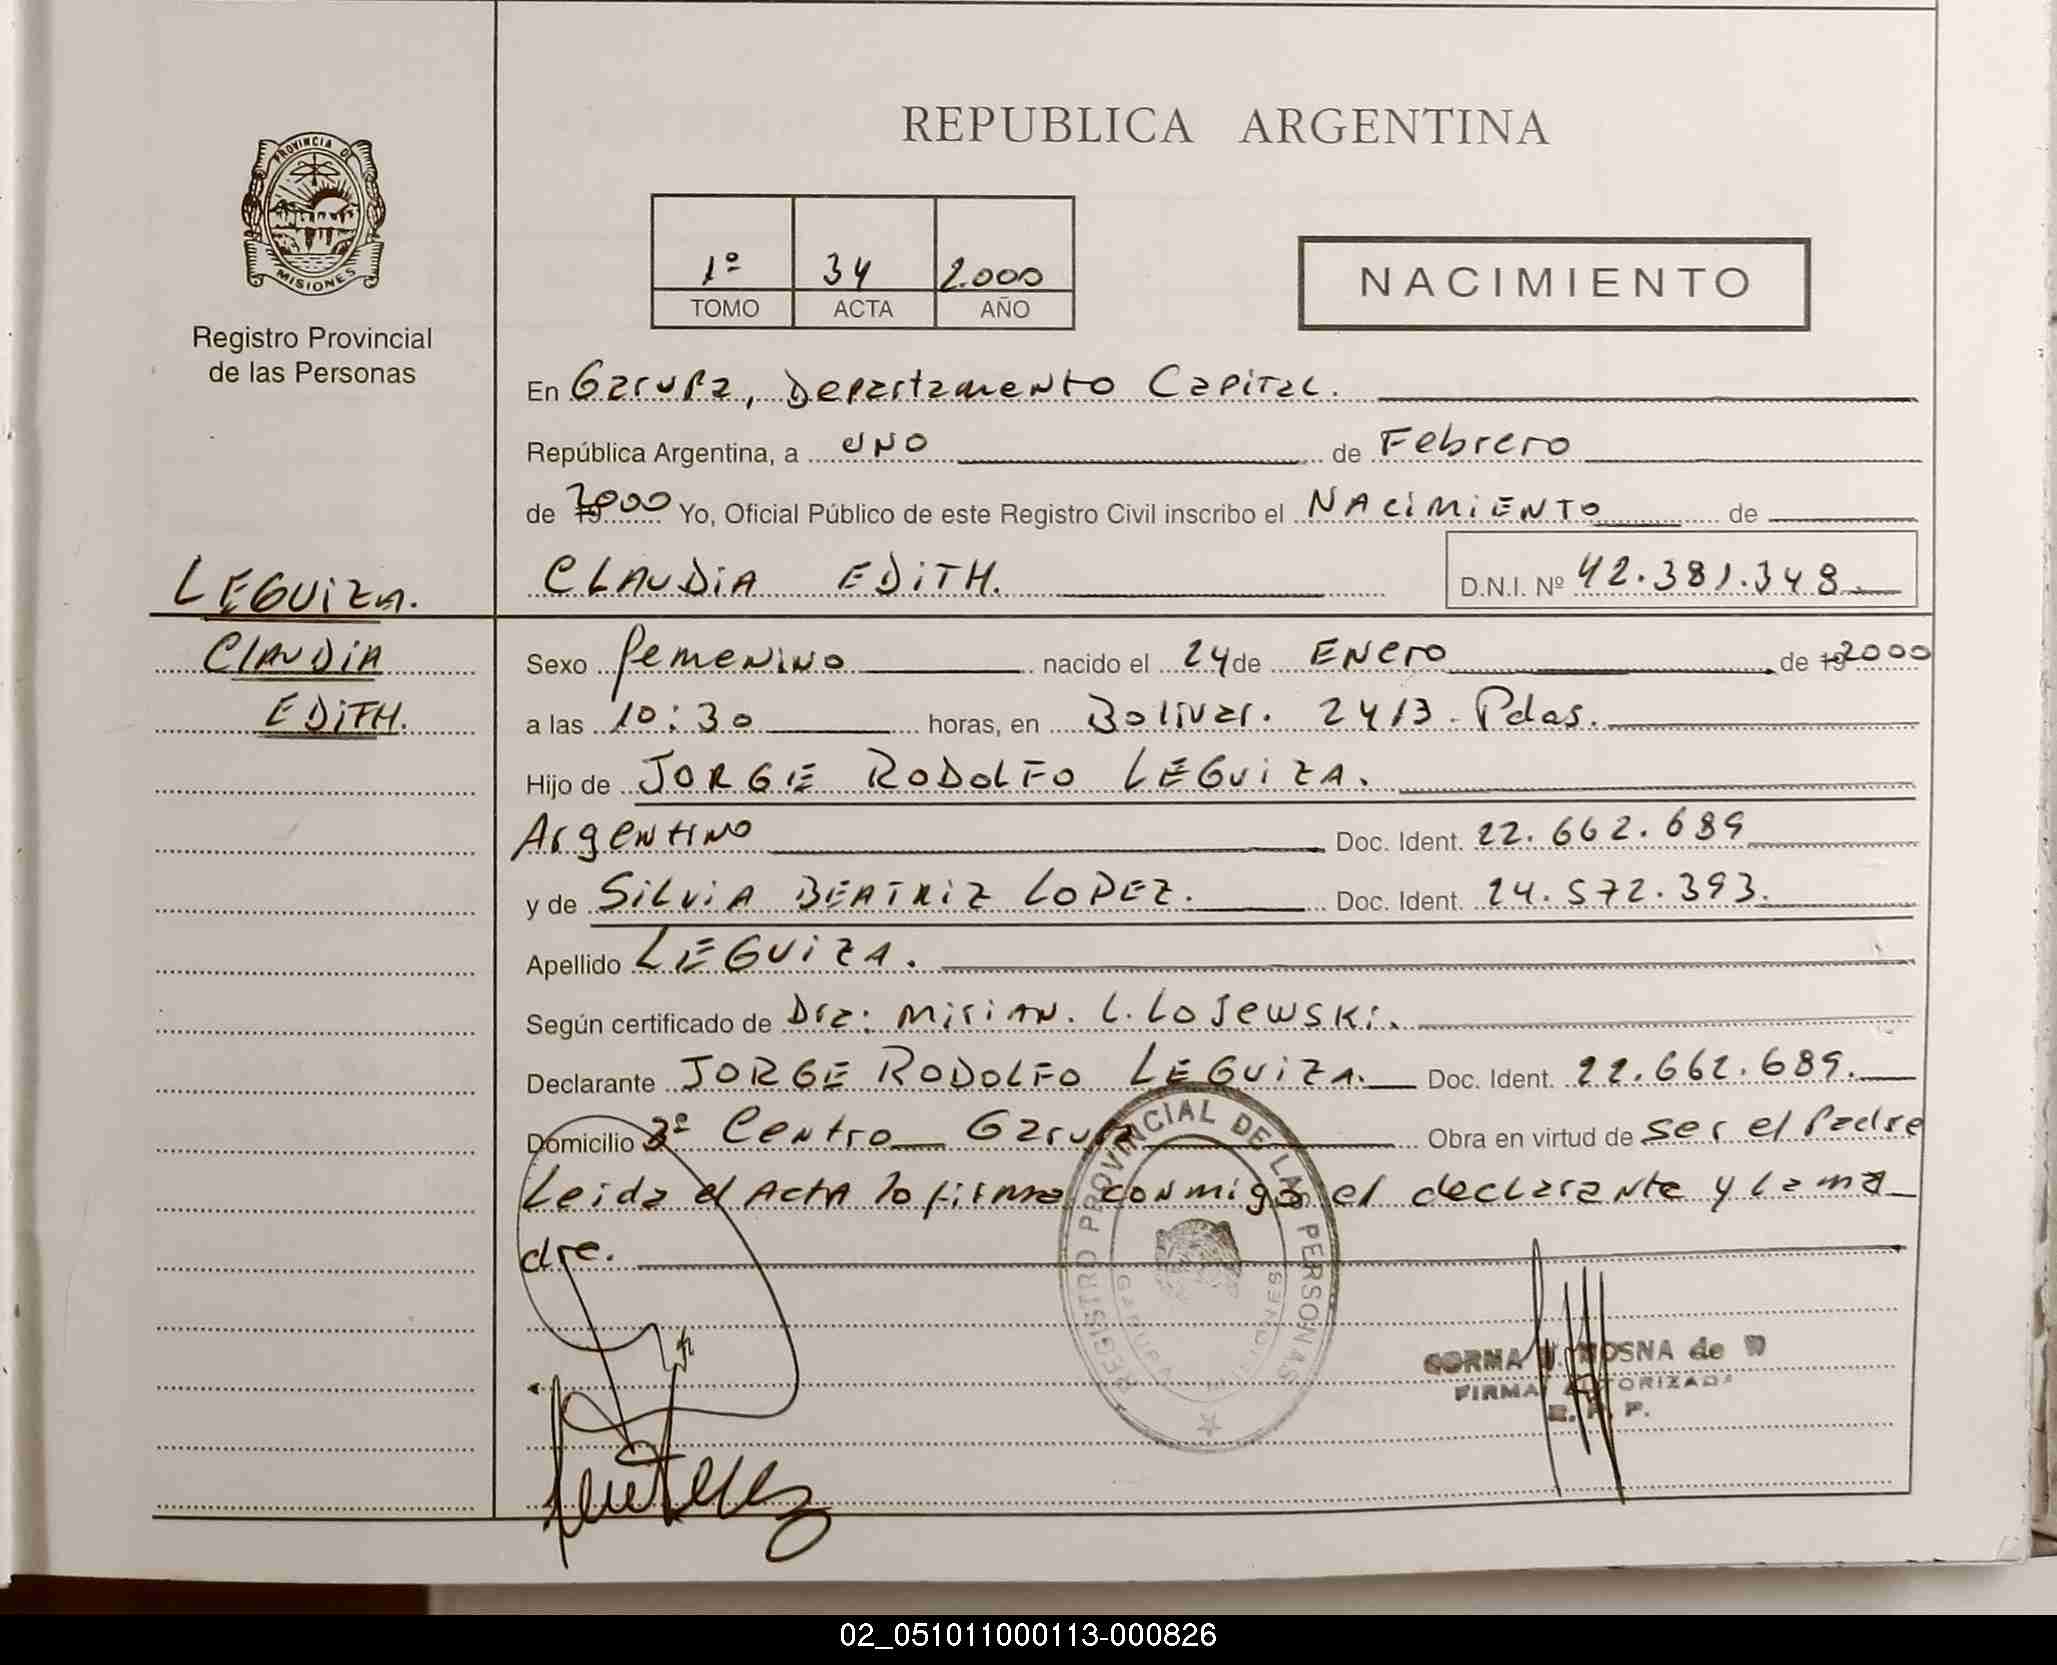 REPUBLICA ARGENTINA
PROVINCIA DE
MISIONES
Registro Provincial
de las Personas
1º 34 2.000
TOMO ACTA AÑO
NACIMIENTO
En Garupa, Departamento Capital.
República Argentina, a uno de Febrero
de 2000 Yo, Oficial Público de este Registro Civil inscribo el NACIMIENTO de
CLAUDIA EDITH. D.N.I. Nº 42.381.348
LEGUIZA.
CLAUDIA
EDITH.
Sexo femenino nacido el 24 de ENERO de 19 2000
a las 10:30 horas, en Bolivar. 2413. Pdas.
Hijo de JORGE RODOLFO LEGUIZA.
Argentino Doc. Ident. 22.662.689
y de SILVIA BEATRIZ LOPEZ. Doc. Ident. 24.572.393.
Apellido LEGUIZA.
Según certificado de Dra: Mirian. L. Lojewski.
Declarante JORGE RODOLFO LEGUIZA. Doc. Ident. 22.662.689.
Domicilio 3º Centro Garupa Obra en virtud de ser el Padre
Leida el ACTA lo firma conmigo el declarante y la ma
dre.
REGISTRO PROVINCIAL DE LAS PERSONAS
GARUPA MISIONES
MOSNA de
FIRMA AUTORIZADA
R. P. P.
02_051011000113-000826